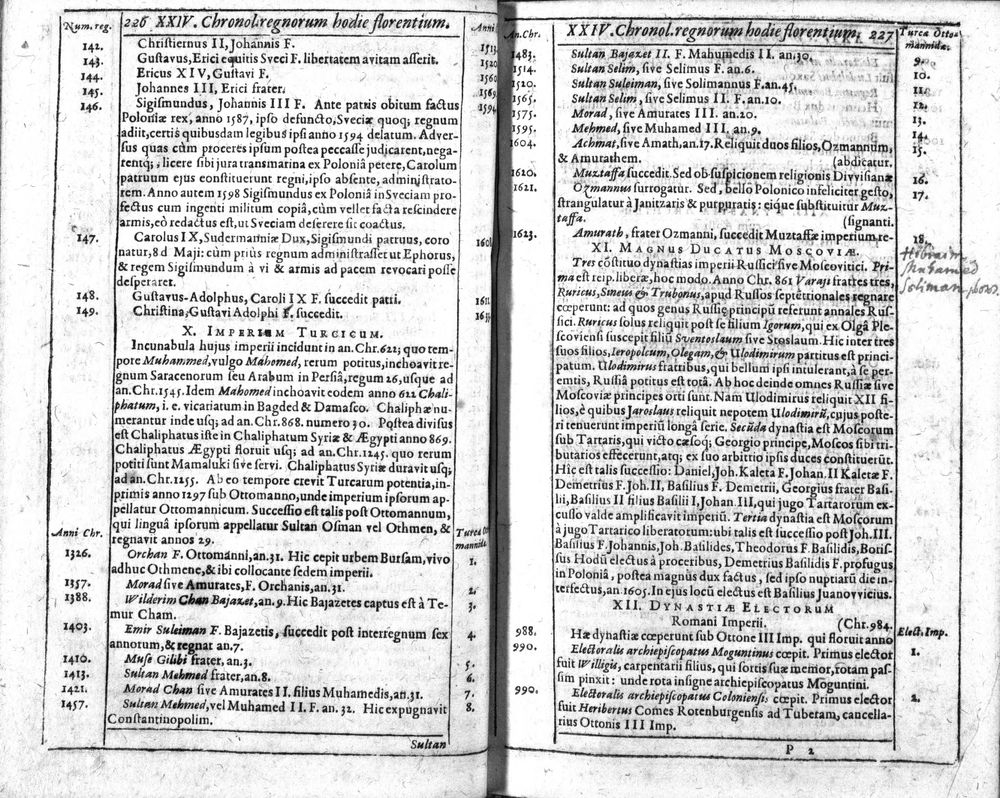 Num. reg.
226 XXIV. Chronol. regnorum hodie florentium.
Anni
142. Christiernus II, Johannis F. 1513.
143. Gustavus, Erici equitis Sveci F. libertatem avitam asserit. 1520
144. Ericus XIV, Gustavi F. 1560
145. Johannes III, Erici frater. 1569
146. Sigismundus, Johannis III F. Ante patris obitum factus 1594
Poloniæ rex, anno 1587, ipso defuncto, Sveciæ quoq; regnum
adiit, certis quibusdam legibus ipsi anno 1594 delatum. Adver-
sus quas cùm proceres ipsum postea peccasse judicarent, nega-
rentq; licere sibi jura transmarina ex Poloniâ petere, Carolum
patruum ejus constituerunt regni, ipso absente, administrato-
rem. Anno autem 1598 Sigismundus ex Poloniâ in Sveciam pro-
fectus cum ingenti militum copiâ, cùm vellet facta rescindere
armis, eò redactus est, ut Sveciam deserere sit coactus.
147. Carolus IX, Sudermanniæ Dux, Sigismundi patruus, coro
natur, 8 d Maji: cùm priùs regnum administrasset ut Ephorus,
& regem Sigismundum à vi & armis ad pacem revocari posse
desperaret.
148. Gustavus-Adolphus, Caroli IX F. succedit patri. 1611
149. Christina, Gustavi Adolphi F. succedit.
X. IMPERIUM TURCICUM.
Incunabula hujus imperii incidunt in an. Chr. 622; quo tem-
pore Muhammed, vulgo Mahomed, rerum potitus, inchoavit re-
gnum Saracenorum seu Arabum in Persiâ, regum 26, usque ad
an. Chr. 1545. Idem Mahomed inchoavit eodem anno 622 Chali-
phatum, i. e. vicariatum in Bagded & Damasco. Chaliphæ nu-
merantur inde usq; ad an. Chr. 868. numero 30. Postea divisus
est Chaliphatus iste in Chaliphatum Syriæ & Ægypti anno 869.
Chaliphatus Ægypti floruit usq; ad an. Chr. 1245. quo rerum
potiti sunt Mamaluki sive servi. Chaliphatus Syriæ duravit usq;
ad an. Chr. 1255. Ab eo tempore crevit Turcarum potentia, in-
primis anno 1297 sub Ottomanno, unde imperium ipsorum ap-
pellatur Ottomannicum. Successio est talis post Ottomannum,
qui linguâ ipsorum appellatur Sultan Osman vel Othmen, &
regnavit annos 29.
Anni Chr.
1326. Orchan F. Ottomanni, an. 31. Hic cepit urbem Bursam, vivo 1.
adhuc Othmene, & ibi collocante sedem imperii.
1357. Morad sive Amurates, F. Orchanis, an. 31. 2.
1388. Wilderim Chan Bajazet, an. 9. Hic Bajazetes captus est à Te- 3.
mur Cham.
1403. Emir Suleiman F. Bajazetis, succedit post interregnum sex 4.
annorum, & regnat an. 7.
1410. Muse Gilibi frater, an. 3. 5.
1413. Sultan Mehmed frater, an. 8. 6.
1421. Morad Chan sive Amurates II. filius Muhamedis, an. 31. 7.
1457. Sultan Mehmed, vel Muhamed II. F. an. 32. Hic expugnavit 8.
Constantinopolim.
Sultan
An. Chr.
XXIV. Chronol. regnorum hodie florentium. 227
Turcæ Otto-
mannidæ.
1483. Sultan Bajazet II. F. Mahumedis II. an. 30. 9.
1514. Sultan Selim, sive Selimus F. an. 6. 10.
1520. Sultan Suleiman, sive Solimannus F. an. 45. 11.
1565. Sultan Selim, sive Selimus II. F. an. 10. 12.
1575. Morad, sive Amurates III. an. 20. 13.
1595. Mehmed, sive Muhamed III. an. 9. 14.
1604. Achmat, sive Amath, an. 17. Reliquit duos filios, Ozmannum, 15.
& Amurathem. (abdicatur.
1620. Muztaffa succedit. Sed ob suspicionem religionis Divvisianæ 16.
1621. Ozmannus surrogatur. Sed, bello Polonico infeliciter gesto, 17.
strangulatur à Janitzaris & purpuratis: eique substituitur Muz-
taffa. (signanti.
1623. Amurath, frater Ozmanni, succedit Muztaffæ imperium re- 18.
Muhamed
Soliman
XI. MAGNUS DUCATUS MOSCOVIÆ.
Tres constituo dynastias imperii Russici sive Moscovitici. Pri-
ma est reip. liberæ, hoc modo. Anno Chr. 861 Varaji fratres tres,
Ruricus, Sineus & Trubonus, apud Russos septentrionales regnare
cœperunt: ad quos genus Russię principū referunt annales Rus-
sici. Ruricus solus reliquit post se filium Igorum, qui ex Olgâ Ple-
scoviensi suscepit filiū Sventoslaum sive Stoslaum. Hic inter tres
suos filios, Ieropolcum, Olegam, & Ulodimirum partitus est princi-
patum. Ulodimirus fratribus, qui bellum ipsi intulerant, à se per-
emtis, Russiâ potitus est totâ. Ab hoc deinde omnes Russiæ sive
Moscoviæ principes orti sunt. Nam Ulodimirus reliquit XII fi-
lios, è quibus Jaroslaus reliquit nepotem Ulodimirū, cujus poste-
ri tenuerunt imperiū longâ serie. Secūda dynastia est Moscorum
sub Tartaris, qui victo cæsoq; Georgio principe, Moscos sibi tri-
butarios effecerunt, atq; ex suo arbitrio ipsis duces constituerūt.
Hîc est talis successio: Daniel, Joh. Kaleta F. Johan. II Kaletæ F.
Demetrius F. Joh. II, Basilius F. Demetrii, Georgius frater Basi-
lii, Basilius II filius Basilii I, Johan. III, qui jugo Tartarorum ex-
cusso valde amplificavit imperiū. Tertia dynastia est Moscorum
à jugo Tartarico liberatorum: ubi talis est successio post Joh. III.
Basilius F. Johannis, Joh. Basilides, Theodorus F. Basilidis, Botis-
sus Hodū electus à proceribus, Demetrius Basilidis F. profugus
in Poloniâ, postea magnus dux factus, sed ipso nuptiarū die in-
terfectus, an. 1605. In ejus locū electus est Basilius Juanovvicius.
XII. DYNASTIÆ ELECTORUM
Romani Imperii. (Chr. 984.
Hæ dynastiæ cœperunt sub Ottone III Imp. qui floruit anno
Elect. Imp.
988.
990. Electoralis archiepiscopatus Moguntinus cœpit. Primus elector 1.
fuit Willigis, carpentarii filius, qui sortis suæ memor, rotam pas-
sim pinxit: unde rota insigne archiepiscopatus Moguntini.
990. Electoralis archiepiscopatus Coloniensis cœpit. Primus elector 2.
fuit Heribertus Comes Rotenburgensis ad Tuberam, cancella-
rius Ottonis III Imp.
P 2